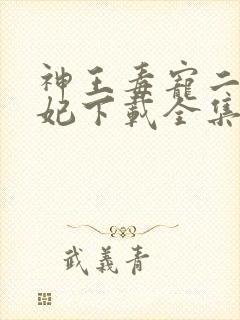 神王毒寵二
妃下載全集
武義青